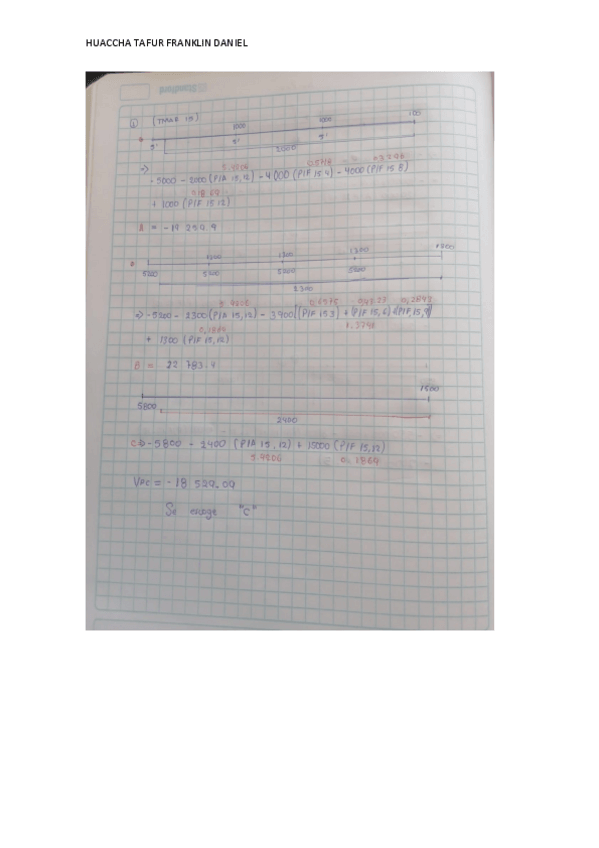 HUACCHA TAFUR FRANKLIN DANIEL
Standford
① (TMAR 15)
1000 1000 100
5' 5' 5'
2000
5.4206 0.5718
⇒ -5000 - 2000 (P/A 15,12) - 4000 (P/F 15 4) - 4000 (P/F 15 8)
+ 1000 (P/F 15,12)
A = -19 250.9
1300 1300 1300 1300
5200 5200 5200 5200
3300
5.4206 0.6575 0.4323 0.2843
⇒ -5200 - 3300 (P/A 15,12) - 3900 [(P/F 15 3) + (P/F 15,6) + (P/F 15,9)]
0.1869 1.3741
+ 1300 (P/F 15,12)
B = 22 783.4
1500
5800
2400
C ⇒ -5800 - 2400 (P/A 15,12) + 15000 (P/F 15,12)
5.4206 0.1869
VPC = -18 529.09
Se escoge "C"